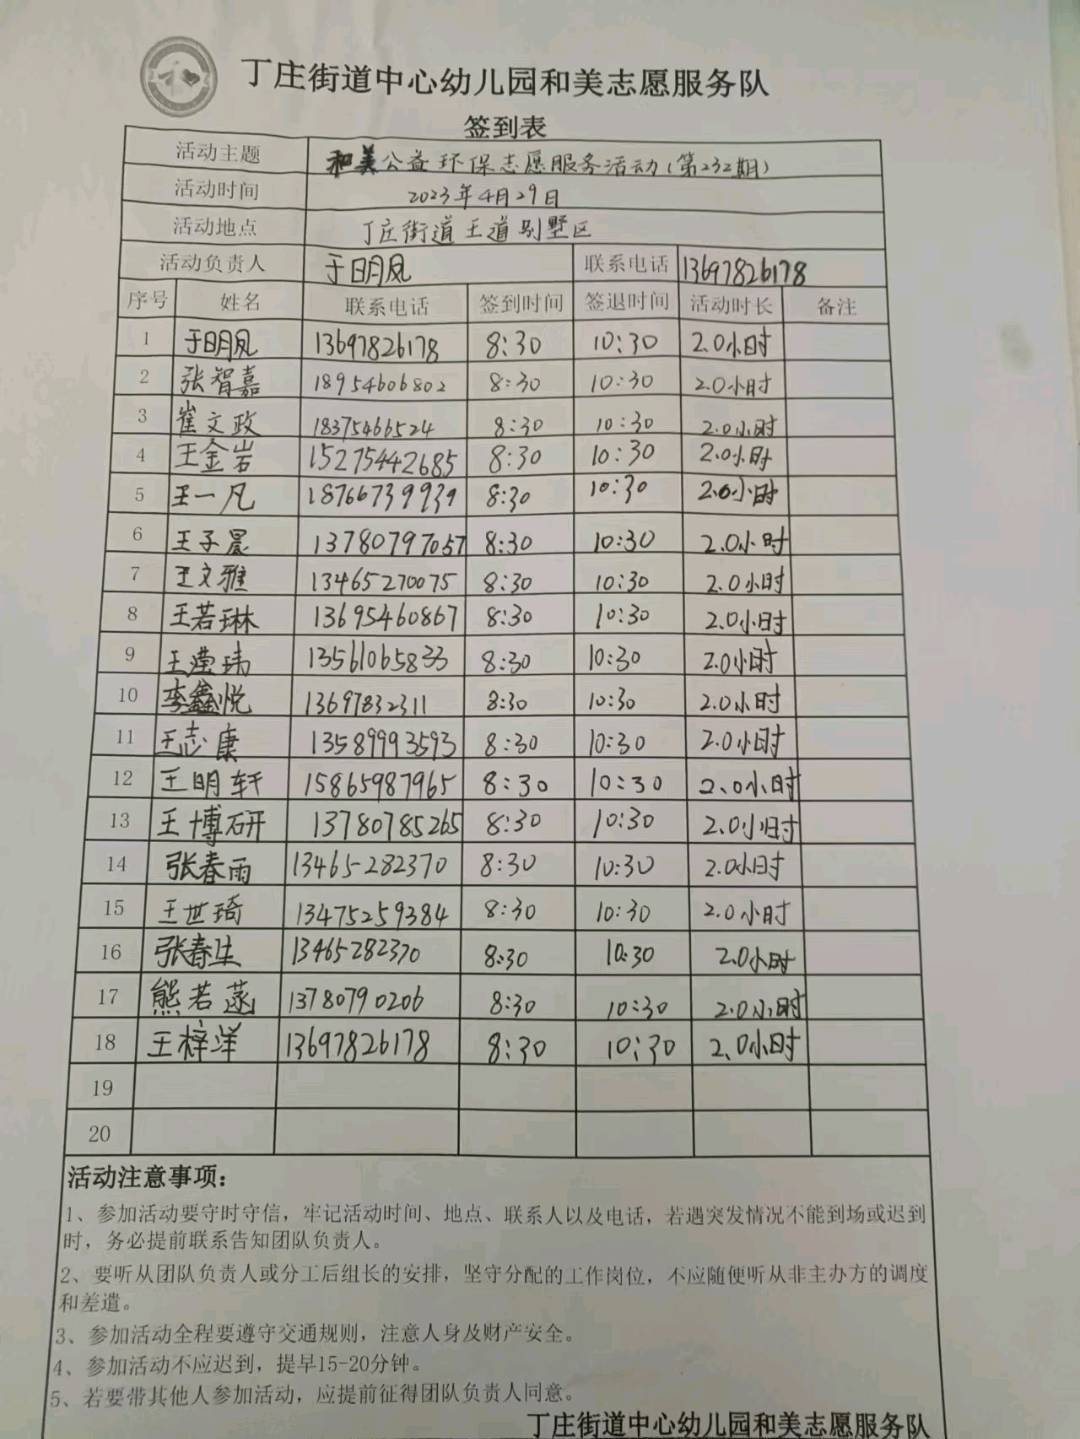 丁庄街道中心幼儿园和美志愿服务队
签到表
活动主题 和美公益环保志愿服务活动(第232期)
活动时间 2023年4月29日
活动地点 丁庄街道王道别墅区
活动负责人 于明凤 联系电话 13697826178
序号 姓名 联系电话 签到时间 签退时间 活动时长 备注
1 于明凤 13697826178 8:30 10:30 2.0小时
2 张智嘉 18954606802 8:30 10:30 2.0小时
3 崔文政 18375466524 8:30 10:30 2.0小时
4 王金岩 15275442685 8:30 10:30 2.0小时
5 王一凡 18766739939 8:30 10:30 2.0小时
6 王子晨 13780797057 8:30 10:30 2.0小时
7 王文雅 13465270075 8:30 10:30 2.0小时
8 王若琳 13695460867 8:30 10:30 2.0小时
9 王滢玮 13561065833 8:30 10:30 2.0小时
10 李鑫悦 13697832311 8:30 10:30 2.0小时
11 王志康 13589993593 8:30 10:30 2.0小时
12 王明轩 15865987965 8:30 10:30 2.0小时
13 王博研 13780785265 8:30 10:30 2.0小时
14 张春雨 13465282370 8:30 10:30 2.0小时
15 王世琦 13475259384 8:30 10:30 2.0小时
16 张春生 13465282370 8:30 10:30 2.0小时
17 熊若菡 13780790206 8:30 10:30 2.0小时
18 王梓洋 13697826178 8:30 10:30 2.0小时
19
20
活动注意事项：
1、参加活动要守时守信，牢记活动时间、地点、联系人以及电话，若遇突发情况不能到场或迟到
时，务必提前联系告知团队负责人。
2、要听从团队负责人或分工后组长的安排，坚守分配的工作岗位，不应随便听从非主办方的调度
和差遣。
3、参加活动全程要遵守交通规则，注意人身及财产安全。
4、参加活动不应迟到，提早15-20分钟。
5、若要带其他人参加活动，应提前征得团队负责人同意。
丁庄街道中心幼儿园和美志愿服务队